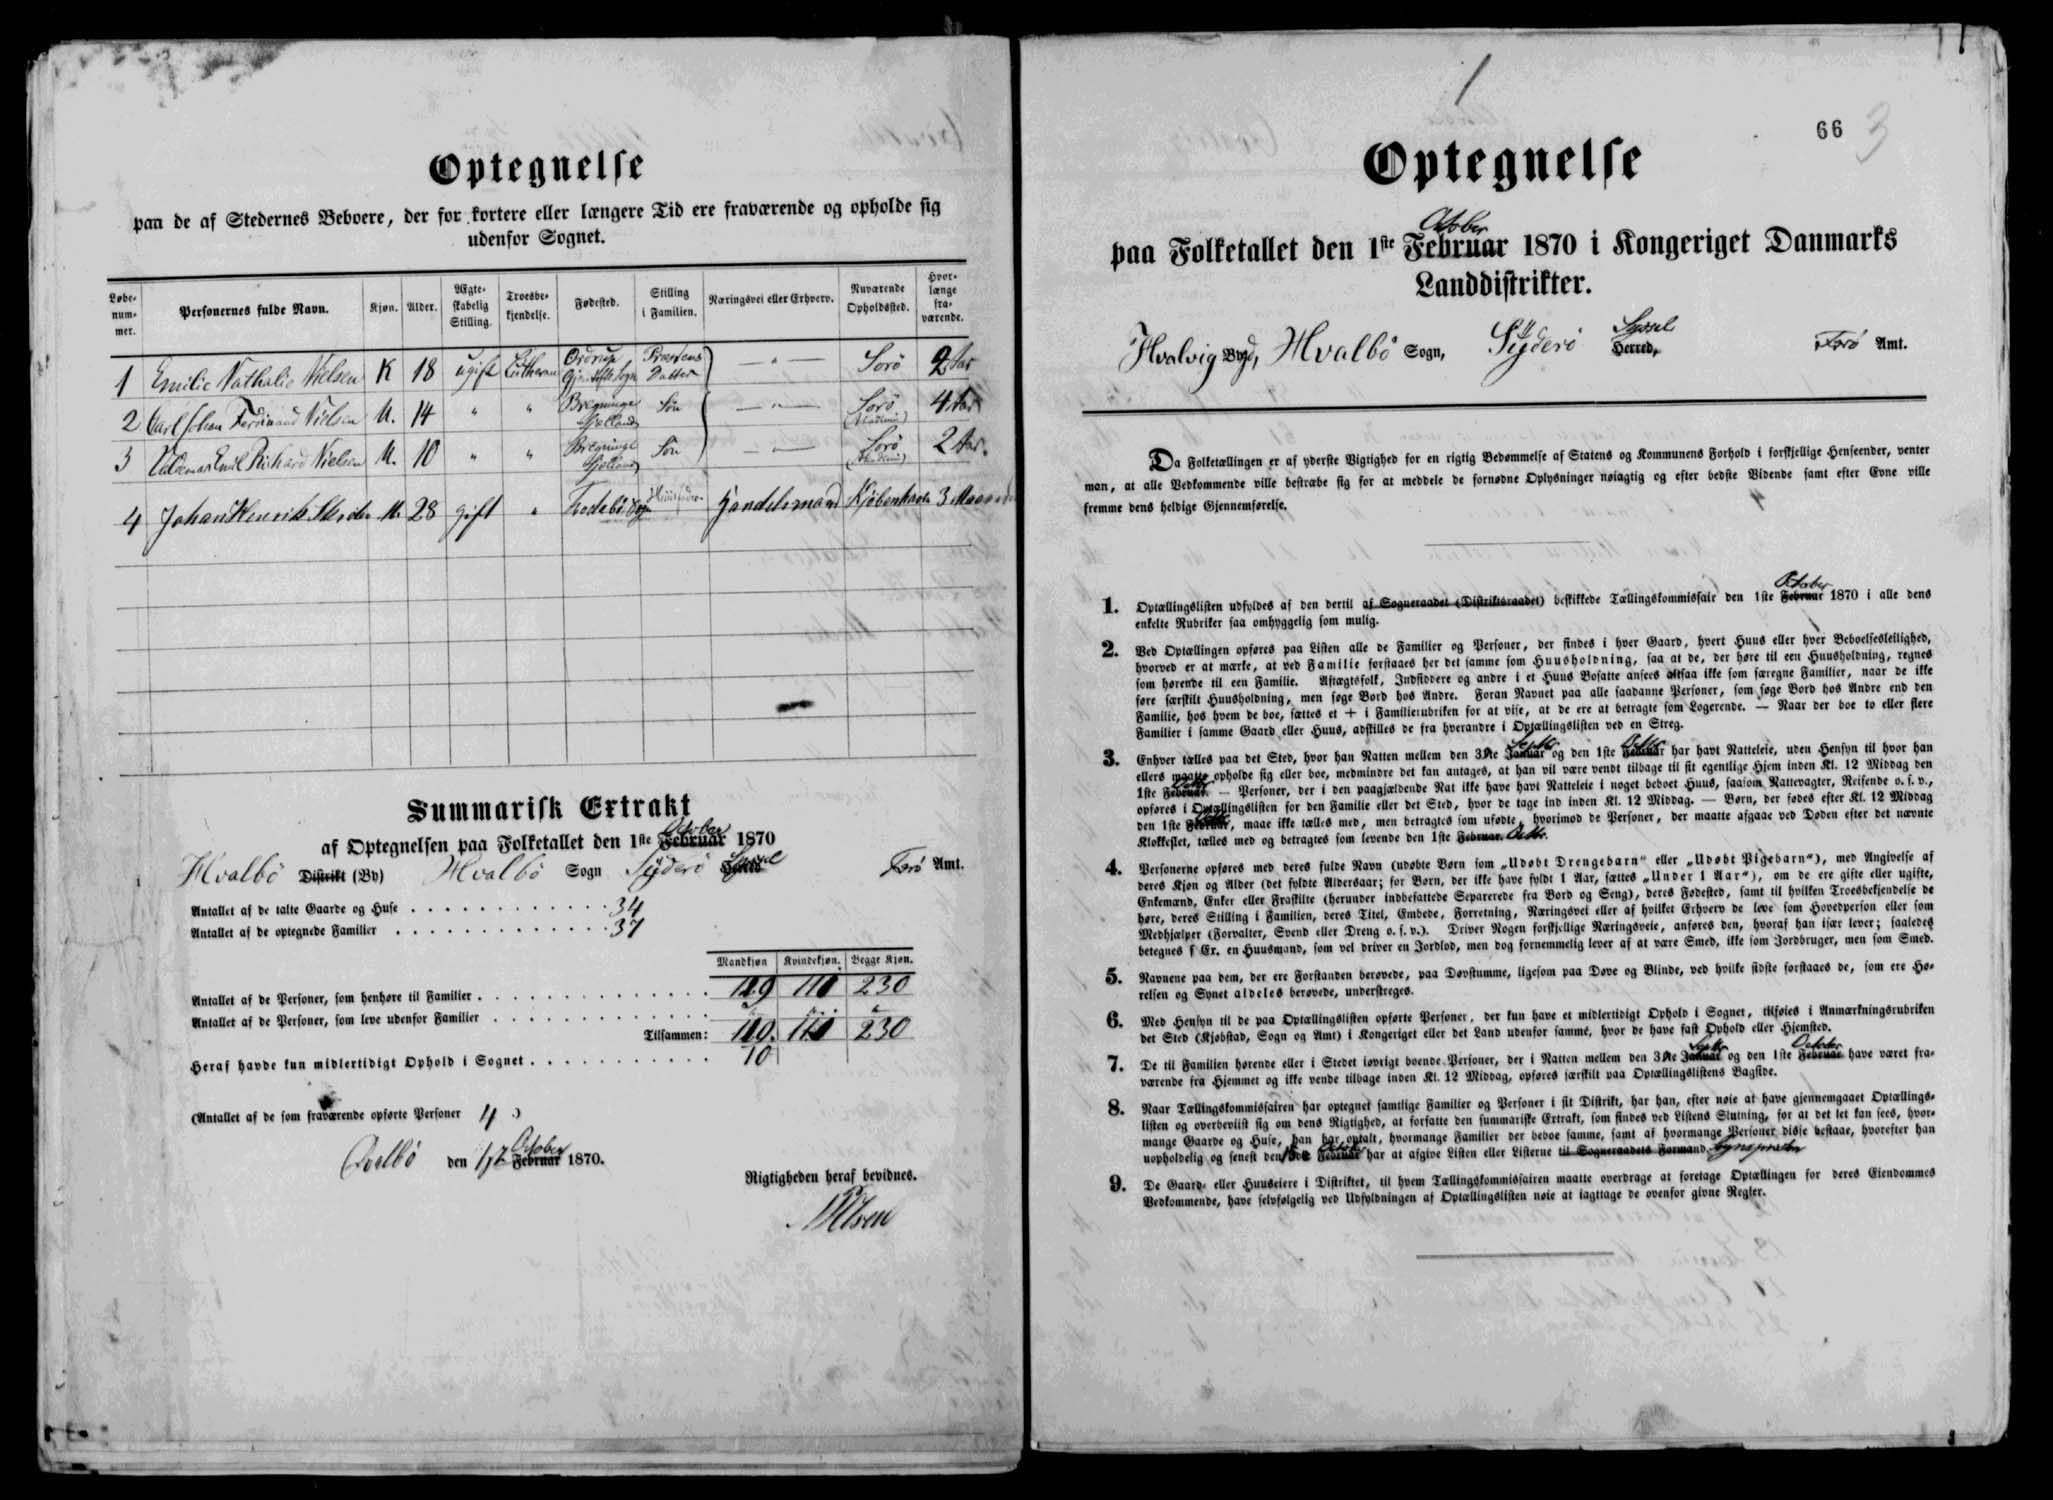 Optegnelse
paa de af Stedernes Beboere, der for kortere eller længere Tid ere fraværende og opholde sig
udenfor Sognet.
Løbe-nummer. Personernes fulde Navn. Kjøn. Alder. Ægteskabelig Stilling. Troesbekjendelse. Fødested. Stilling i Familien. Næringsvei eller Erhverv. Nuværende Opholdssted. Hvorlænge fraværende.
1 Emilie Nathalie Nielsen K 18 ugift Lutheran Ordrup Gjentofte Sogn Præstens Datter — " — Sorö 2 Aar
2 Carl Johan Ferdinand Nielsen M. 14 " " Bregninge Sjelland Sön — " — Sorö (Academie) 4 Aar
3 Valdemar Emil Richard Nielsen M. 10 " " Bregninge Sjelland Sön — " — Sorö (Academie) 2 Aar.
4 Johan Henrik M. 28 gift " Frodebö Sogn Handelsmand Kjöbenhavn 3 Maaneder
Summarisk Extrakt
October
af Optegnelsen paa Folketallet den 1ste Februar 1870
Hvalbö Distrikt (By) Hvalbö Sogn Syderö Syssel Herred Færö Amt.
Antallet af de talte Gaarde og Huse . . . 34
Antallet af de optegnede Familier . . . 37
Mandkjøn Kvindekjøn. Begge Kjøn.
Antallet af de Personer, som henhøre til Familier . . . 119 111 230
Antallet af de Personer, som leve udenfor Familier . . . " " "
Tilsammen: 119. 111 230
Heraf havde kun midlertidigt Ophold i Sognet . . . 10
(Antallet af de som fraværende opførte Personer 4 )
October
Qvalbö den 17 Februar 1870.
Rigtigheden heraf bevidnes.
1
66 3
Optegnelse
October
paa Folketallet den 1ste Februar 1870 i Kongeriget Danmarks
Landdistrikter.
Syssel
Hvalvig Bygd, Hvalbö Sogn, Syderö Herred, Færö Amt.
Da Folketællingen er af yderste Vigtighed for en rigtig Bedømmelse af Statens og Kommunens Forhold i forskjellige Henseender, venter
man, at alle Vedkommende ville bestræbe sig for at meddele de fornødne Oplysninger nøiagtig og efter bedste Vidende samt efter Evne ville
fremme dens heldige Gjennemførelse.
October
1. Optællingslisten udfyldes af den dertil af Sogneraadet (Distriktsraadet) beskikkede Tællingskommissair den 1ste Februar 1870 i alle dens
enkelte Rubriker saa omhyggelig som mulig.
2. Ved Optællingen opføres paa Listen alle de Familier og Personer, der findes i hver Gaard, hvert Huus eller hver Beboelsesleilighed,
hvorved er at mærke, at ved Familie forstaaes her det samme som Huusholdning, saa at de, der høre til een Huusholdning, regnes
som hørende til een Familie. Aftægtsfolk, Indsiddere og andre i et Huus Bosatte ansees altsaa ikke som særegne Familier, naar de ikke
føre særskilt Huusholdning, men søge Bord hos Andre. Foran Navnet paa alle saadanne Personer, som søge Bord hos Andre end den
Familie, hos hvem de boe, sættes et + i Familierubriken for at vise, at de ere at betragte som Logerende. — Naar der boe to eller flere
Familier i samme Gaard eller Huus, adskilles de fra hverandre i Optællingslisten ved en Streg.
Septbr Octbr
3. Enhver tælles paa det Sted, hvor han Natten mellem den 31te Januar og den 1ste Februar har havt Natteleie, uden Hensyn til hvor han
ellers maatte opholde sig eller boe, medmindre det kan antages, at han vil være vendt tilbage til sit egentlige Hjem inden Kl. 12 Middag den
Octbr
1ste Februar. — Personer, der i den paagjældende Nat ikke have havt Natteleie i noget beboet Huus, saasom Nattevagter, Reisende o. s. v.,
opføres i Optællingslisten for den Familie eller det Sted, hvor de tage ind inden Kl. 12 Middag. — Børn, der fødes efter Kl. 12 Middag
Octbr
den 1ste Februar, maae ikke tælles med, men betragtes som ufødte, hvorimod de Personer, der maatte afgaae ved Døden efter det nævnte
Klokkeslet, tælles med og betragtes som levende den 1ste Februar. Octbr.
4. Personerne opføres med deres fulde Navn (udøbte Børn som „Udøbt Drengebarn" eller „Udøbt Pigebarn"), med Angivelse af
deres Kjøn og Alder (det fyldte Aldersaar; for Børn, der ikke have fyldt 1 Aar, sættes „Under 1 Aar"), om de ere gifte eller ugifte,
Enkemænd, Enker eller Fraskilte (herunder indbefattede Separerede fra Bord og Seng), deres Fødested, samt til hvilken Troesbekjendelse de
høre, deres Stilling i Familien, deres Titel, Embede, Forretning, Næringsvei eller af hvilket Erhverv de leve som Hovedperson eller som
Medhjælper (Forvalter, Svend eller Dreng o. s. v.). Driver Nogen forskjellige Næringsveie, anføres den, hvoraf han især lever; saaledes
betegnes f Ex. en Huusmand, som vel driver en Jordlod, men dog fornemmelig lever af at være Smed, ikke som Jordbruger, men som Smed.
5. Navnene paa dem, der ere Forstanden berøvede, paa Døvstumme, ligesom paa Døve og Blinde, ved hvilke sidste forstaaes de, som ere Hø-
relsen og Synet aldeles berøvede, understreges.
6. Med Hensyn til de paa Optællingslisten opførte Personer, der kun have et midlertidigt Ophold i Sognet, tilføies i Anmærkningsrubriken
det Sted (Kjøbstad, Sogn og Amt) i Kongeriget eller det Land udenfor samme, hvor de have fast Ophold eller Hjemsted.
Septbr October
7. De til Familien hørende eller i Stedet iøvrigt boende Personer, der i Natten mellem den 31te Januar og den 1ste Februar have været fra-
værende fra Hjemmet og ikke vende tilbage inden Kl. 12 Middag, opføres særskilt paa Optællingslistens Bagside.
8. Naar Tællingskommissairen har optegnet samtlige Familier og Personer i sit Distrikt, har han, efter nøie at have gjennemgaaet Optællings-
listen og overbeviist sig om dens Rigtighed, at forfatte den summariske Extrakt, som findes ved Listens Slutning, for at det let kan sees, hvor-
mange Gaarde og Huse, han har optalt, hvormange Familier der beboe samme, samt af hvormange Personer disse bestaae, hvorefter han
October
uopholdelig og senest den Februar har at afgive Listen eller Listerne til Sogneraadets Formand. Sognepræsten
9. De Gaard- eller Huuseiere i Distriktet, til hvem Tællingskommissairen maatte overdrage at foretage Optællingen for deres Eiendommes
Vedkommende, have selvfølgelig ved Udfyldningen af Optællingslisten nøie at iagttage de ovenfor givne Regler.